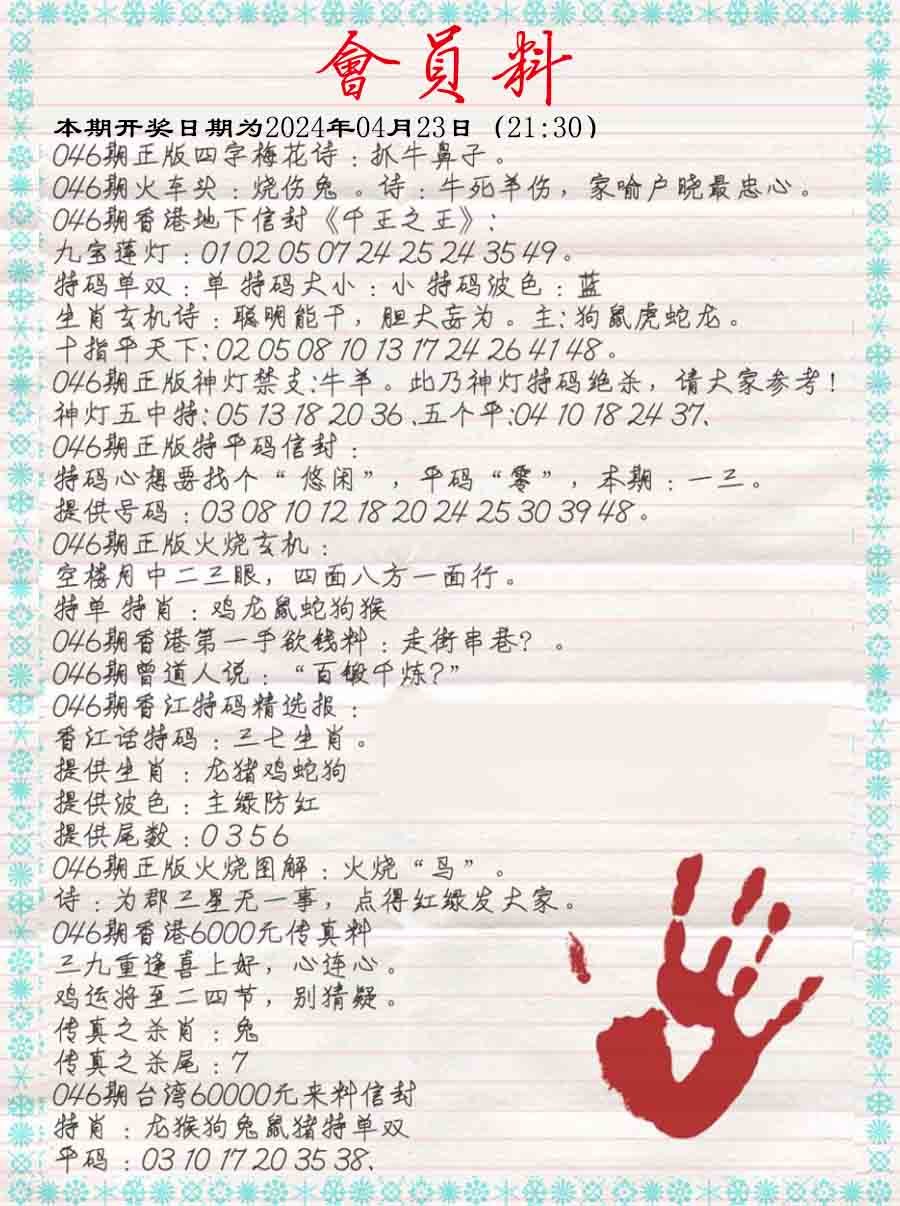 會員料
本期开奖日期为2024年04月23日（21:30）
046期正版四字梅花诗：抓牛鼻子。
046期火车头：烧伤兔。诗：牛死羊伤，家喻户晓最忠心。
046期香港地下信封《千王之王》：
九宝莲灯：01 02 05 07 24 25 24 35 49。
特码单双：单 特码大小：小 特码波色：蓝
生肖玄机诗：聪明能干，胆大妄为。主：狗鼠虎蛇龙。
十指平天下：02 05 08 10 13 17 24 26 41 48。
046期正版神灯禁支：牛羊。此乃神灯特码绝杀，请大家参考！
神灯五中特：05 13 18 20 36、五个平：04 10 18 24 37、
046期正版特平码信封：
特码心想要找个“悠闲”，平码“零”，本期：一三。
提供号码：03 08 10 12 18 20 24 25 30 39 48。
046期正版火烧玄机：
空楼月中二三眼，四面八方一面行。
特单 特肖：鸡龙鼠蛇狗猴
046期香港第一手欲钱料：走街串巷？。
046期曾道人说：“百锻千炼？”
046期香江特码精选报：
香江话特码：三七生肖。
提供生肖：龙猪鸡蛇狗
提供波色：主绿防红
提供尾数：0 3 5 6
046期正版火烧图解：火烧“鸟”。
诗：为郡三星无一事，点得红绿发大家。
046期香港6000元传真料
三九重逢喜上好，心连心。
鸡运将至二四节，别猜疑。
传真之杀肖：兔
传真之杀尾：7
046期台湾60000元来料信封
特肖：龙猴狗兔鼠猪特单双
平码：03 10 17 20 35 38、